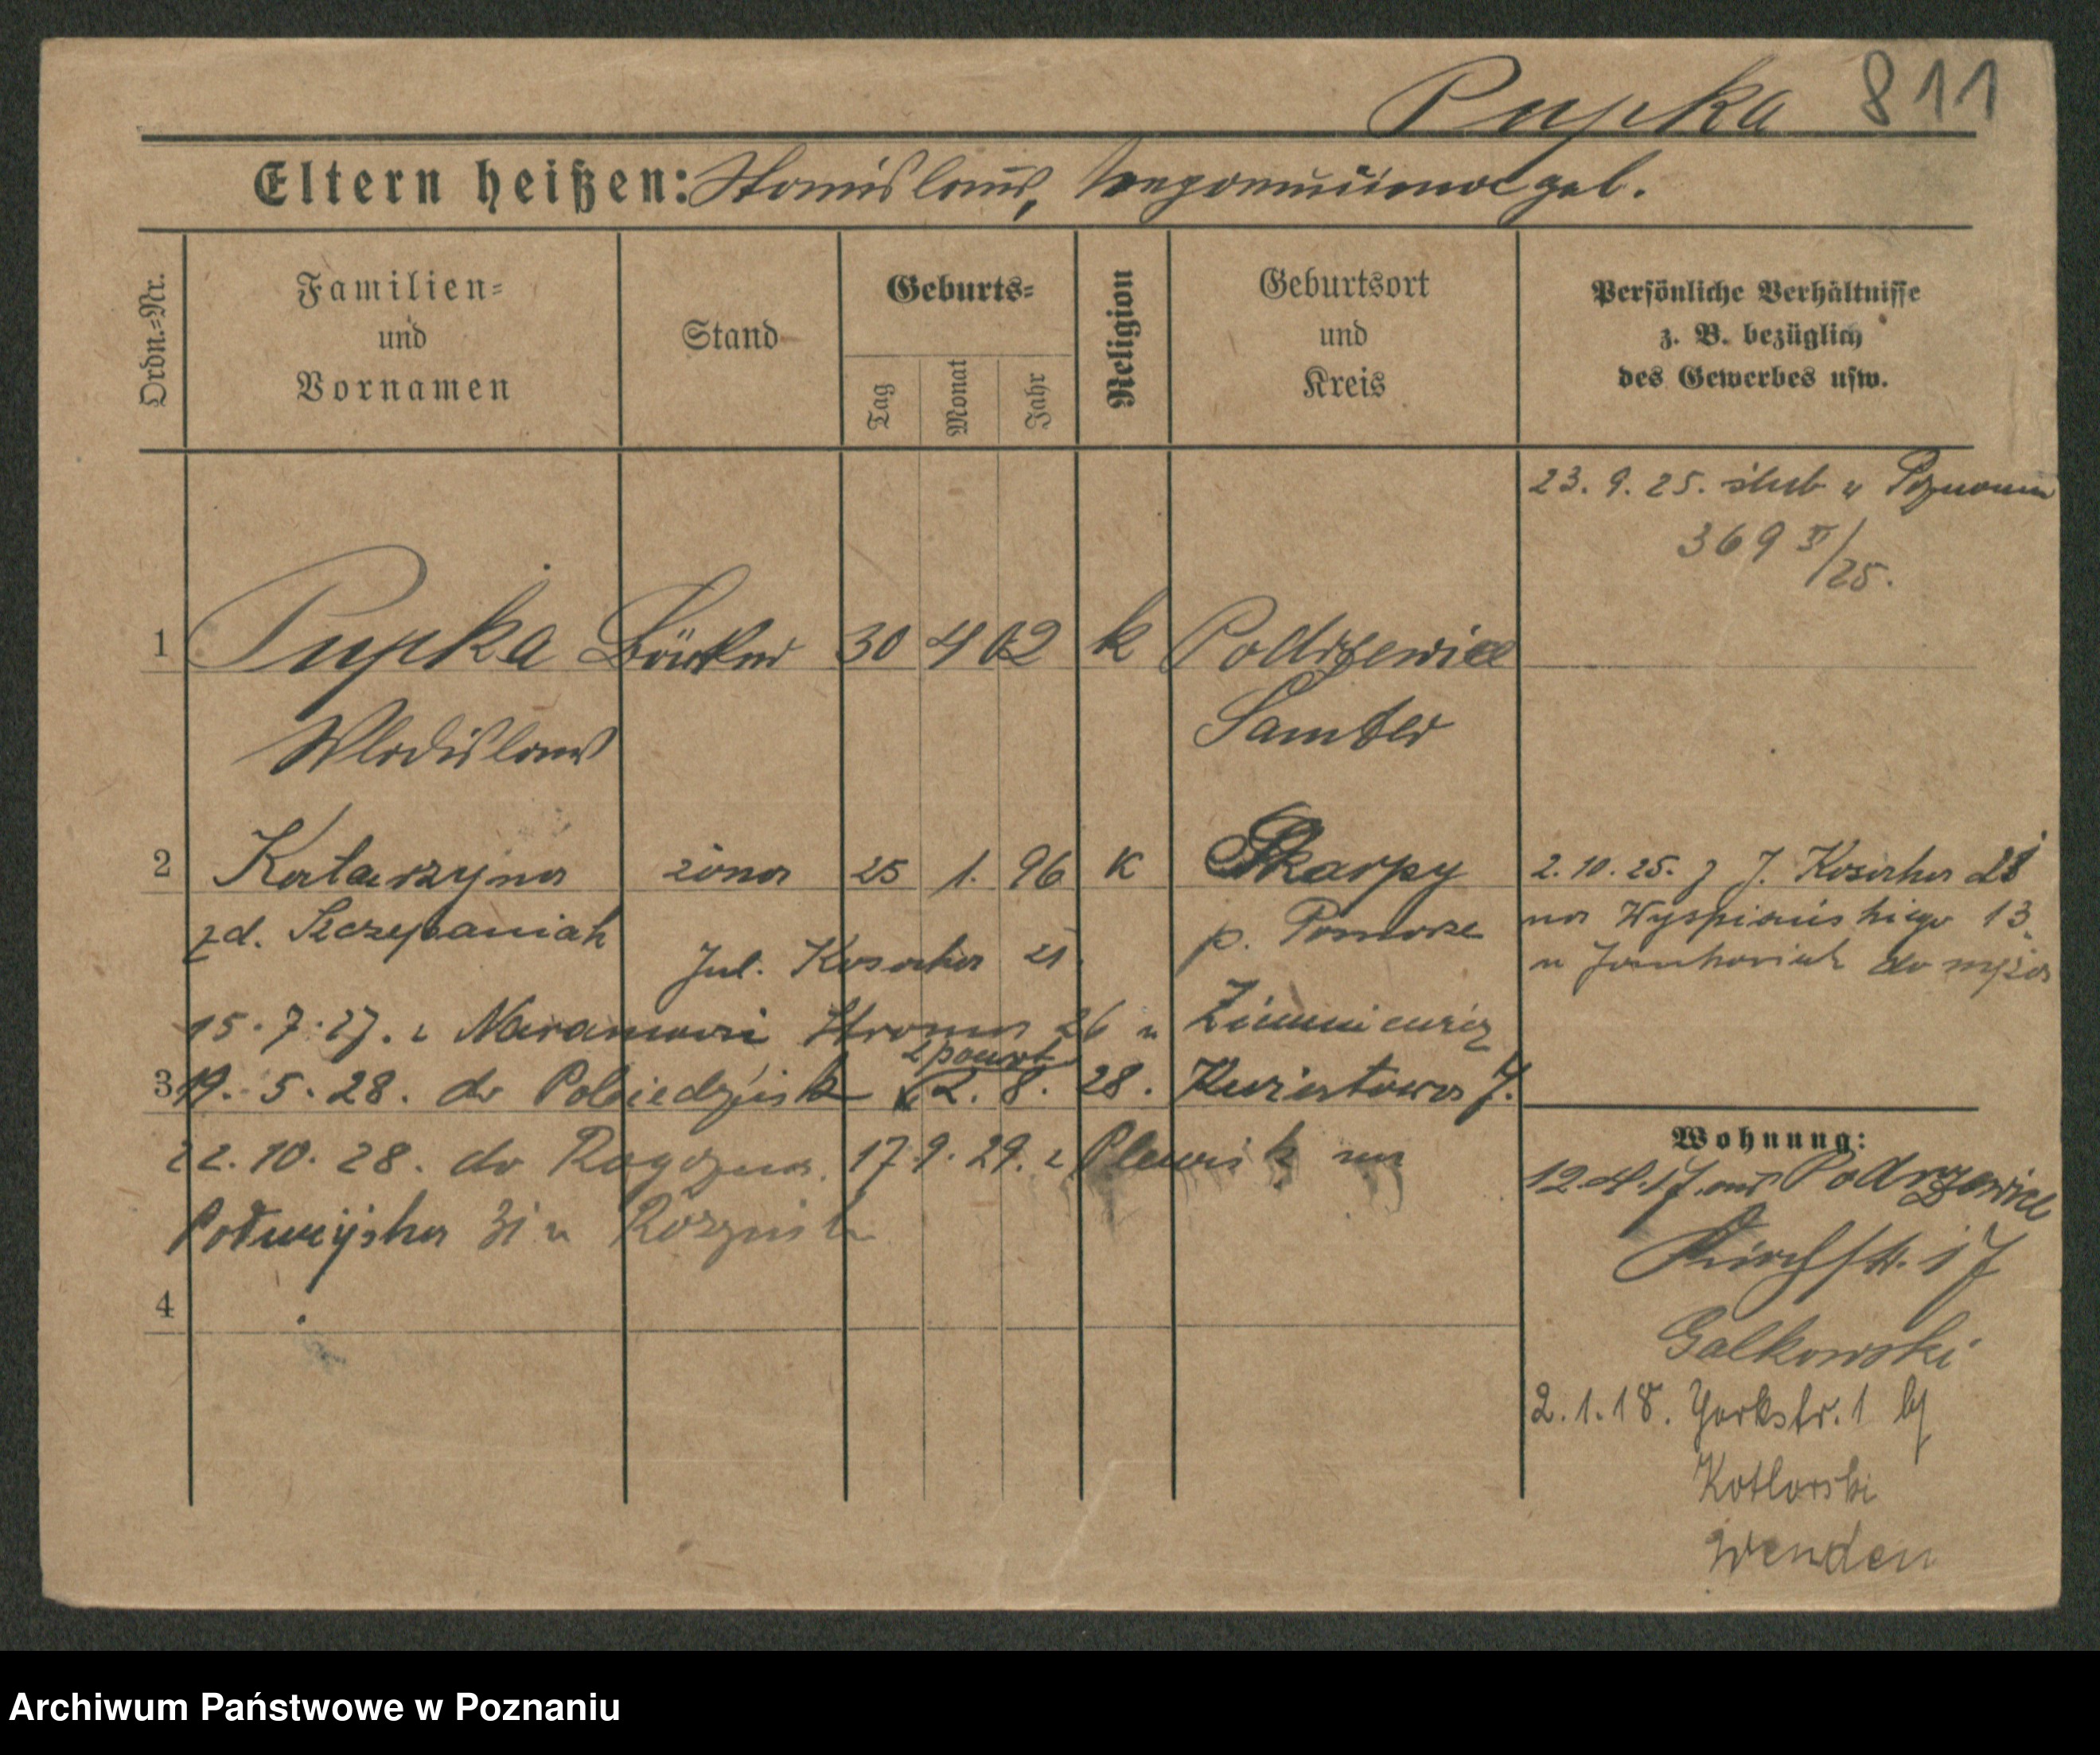 Pupka 811
Eltern heißen: Stanislaus, geb.
Ordn.-Nr.
Familien-
und
Vornamen
Stand
Geburts-
Tag
Monat
Jahr
Religion
Geburtsort
und
Kreis
Persönliche Verhältnisse
z. B. bezüglich
des Gewerbes usw.
23. 9. 25. ślub w Poznaniu
369 /25.
1 Pupka 30 4 02 k Podrzewice
Wladislaus Samter
2 Katarzyna żona 25 1. 96 K Skarpy
zd. Szczepaniak p. Pomorze
2. 10. 25. z J. Kosacka
na Wyspiańskiego 13.
u do męża
Jul. Kosacka 21.
15. 7. 27. z Naramowic Stroma 26 u
3 19. 5. 28. do Pobiedzisk z powrot 2. 8. 28. Kwiatowa 7.
22. 10. 28. do Rogozna. 17. 9. 29. z Plewisk na
31 u
4
Wohnung:
12. 4. 17. aus Podrzewice
Kirchstr. 17
Galkowski
2. 1. 18. Yorkstr. 1 bei
Kotlarski
Wenden
Archiwum Państwowe w Poznaniu